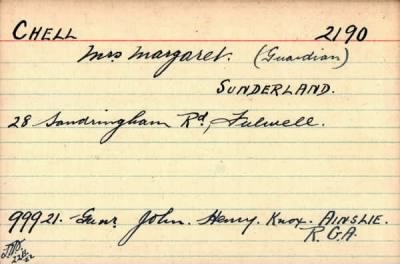 CHELL 2190
Mrs Margaret. (Guardian)
SUNDERLAND.
28 Sandringham Rd, Fulwell.
99921. Gunr. John. Henry. Knox. AINSLIE.
R.G.A.